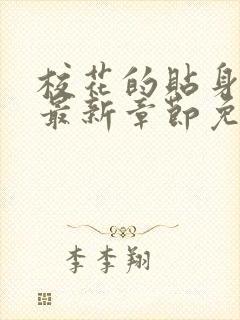 校花的贴身
最新章节免
李李翔